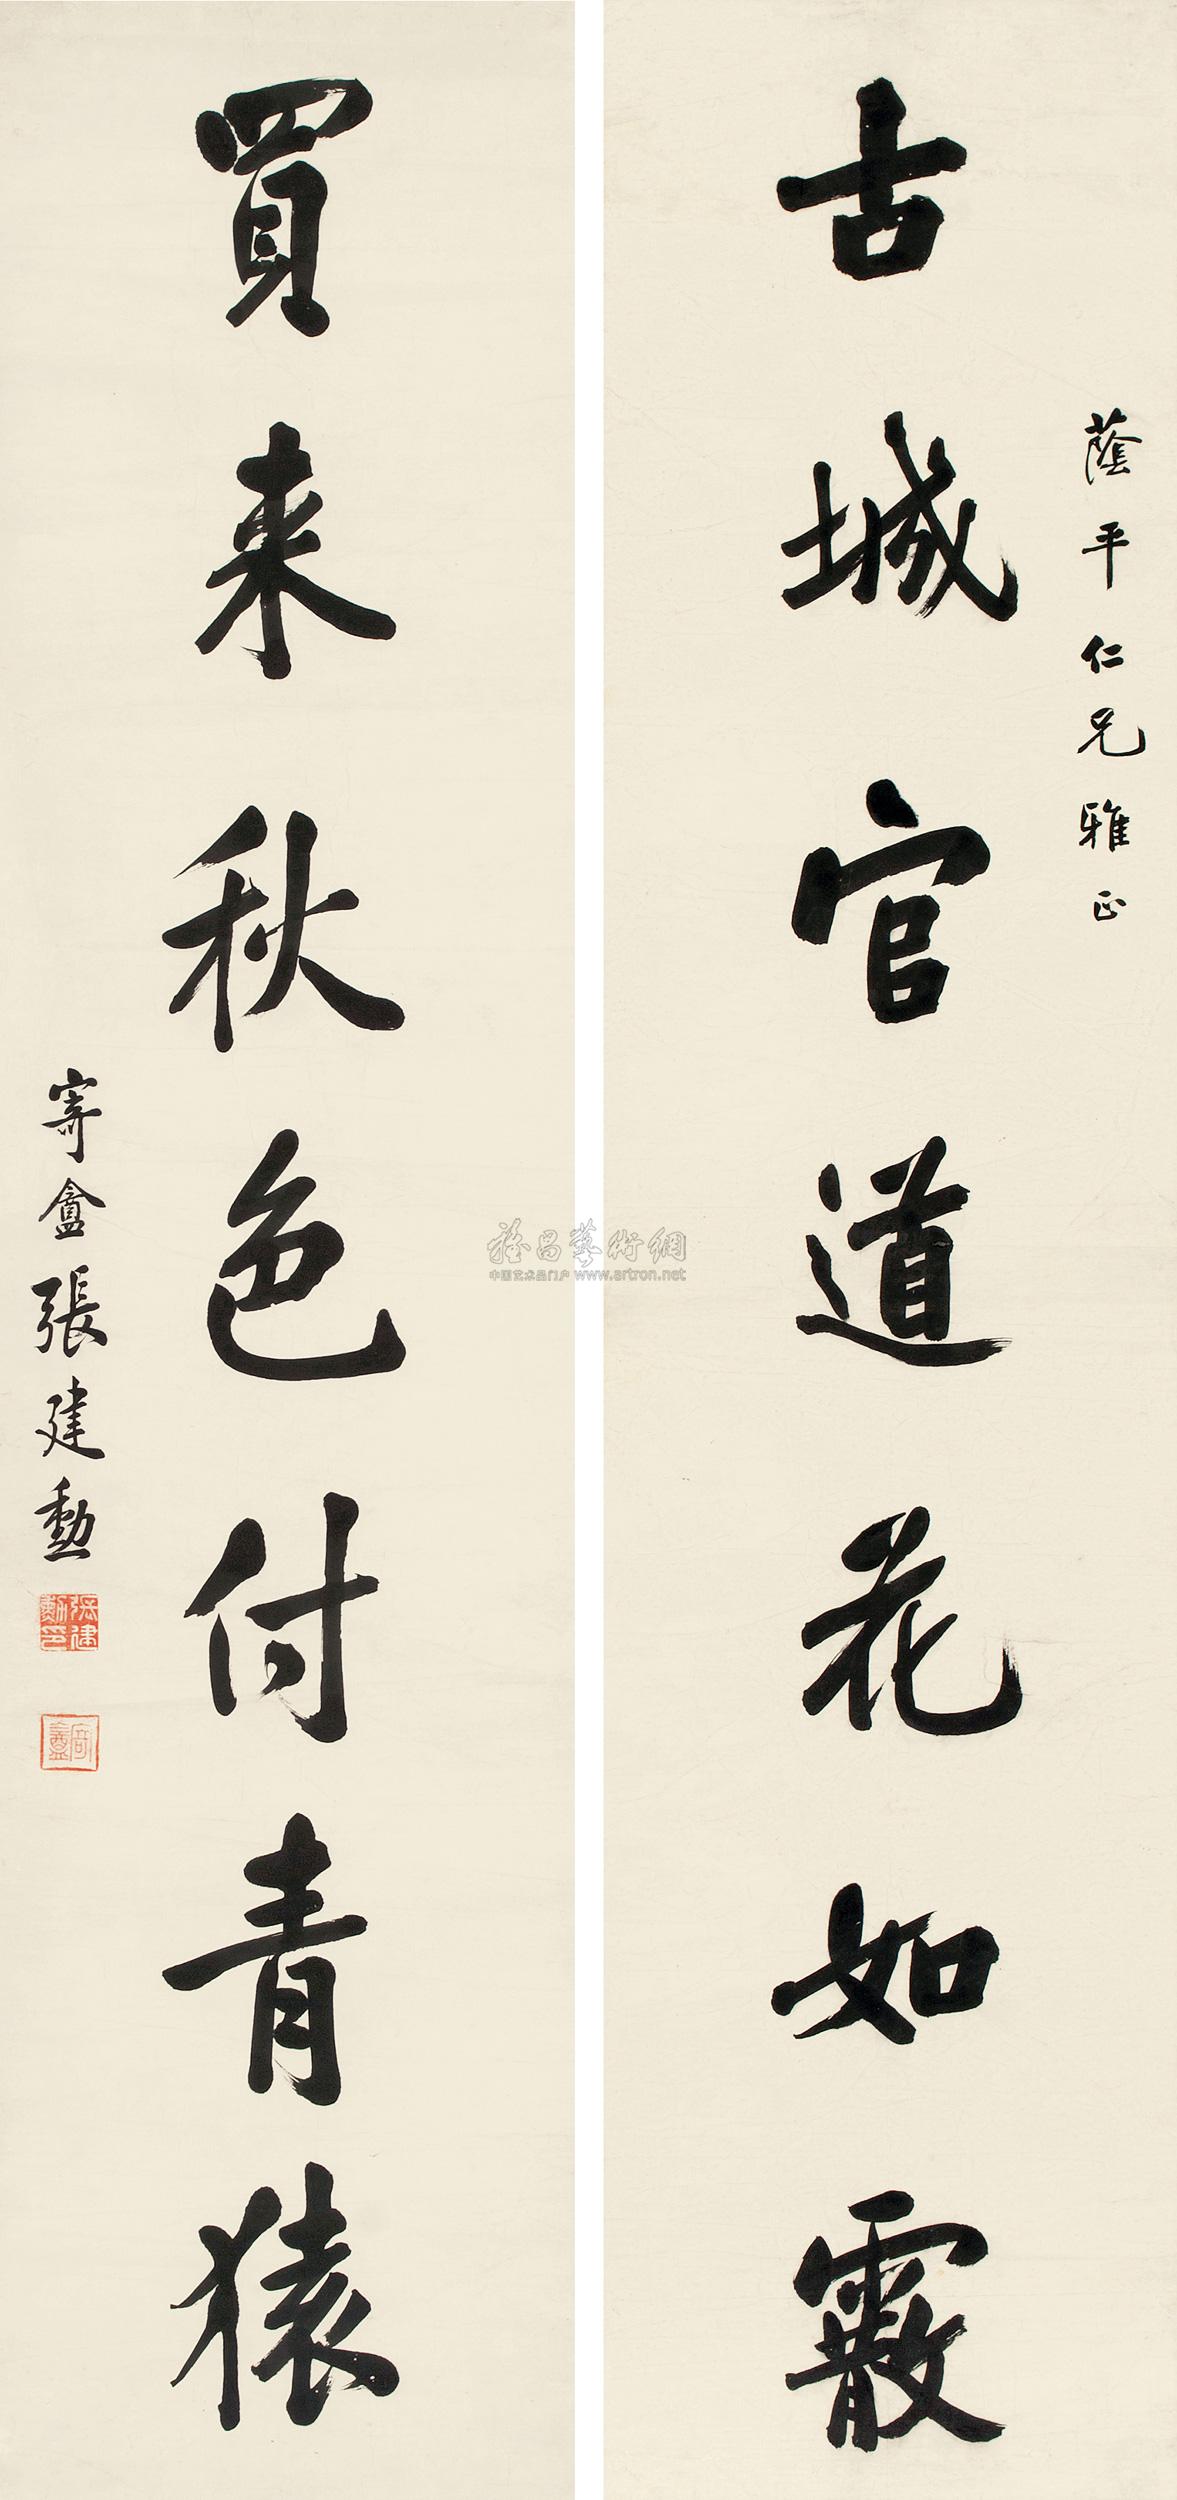 古城官道花如霰
蔭平仁兄雅正
買來秋色付青猿
寄盦張建勳
張建勳印
寄盦
雅昌藝術網
中国艺术品门户 www.artron.net